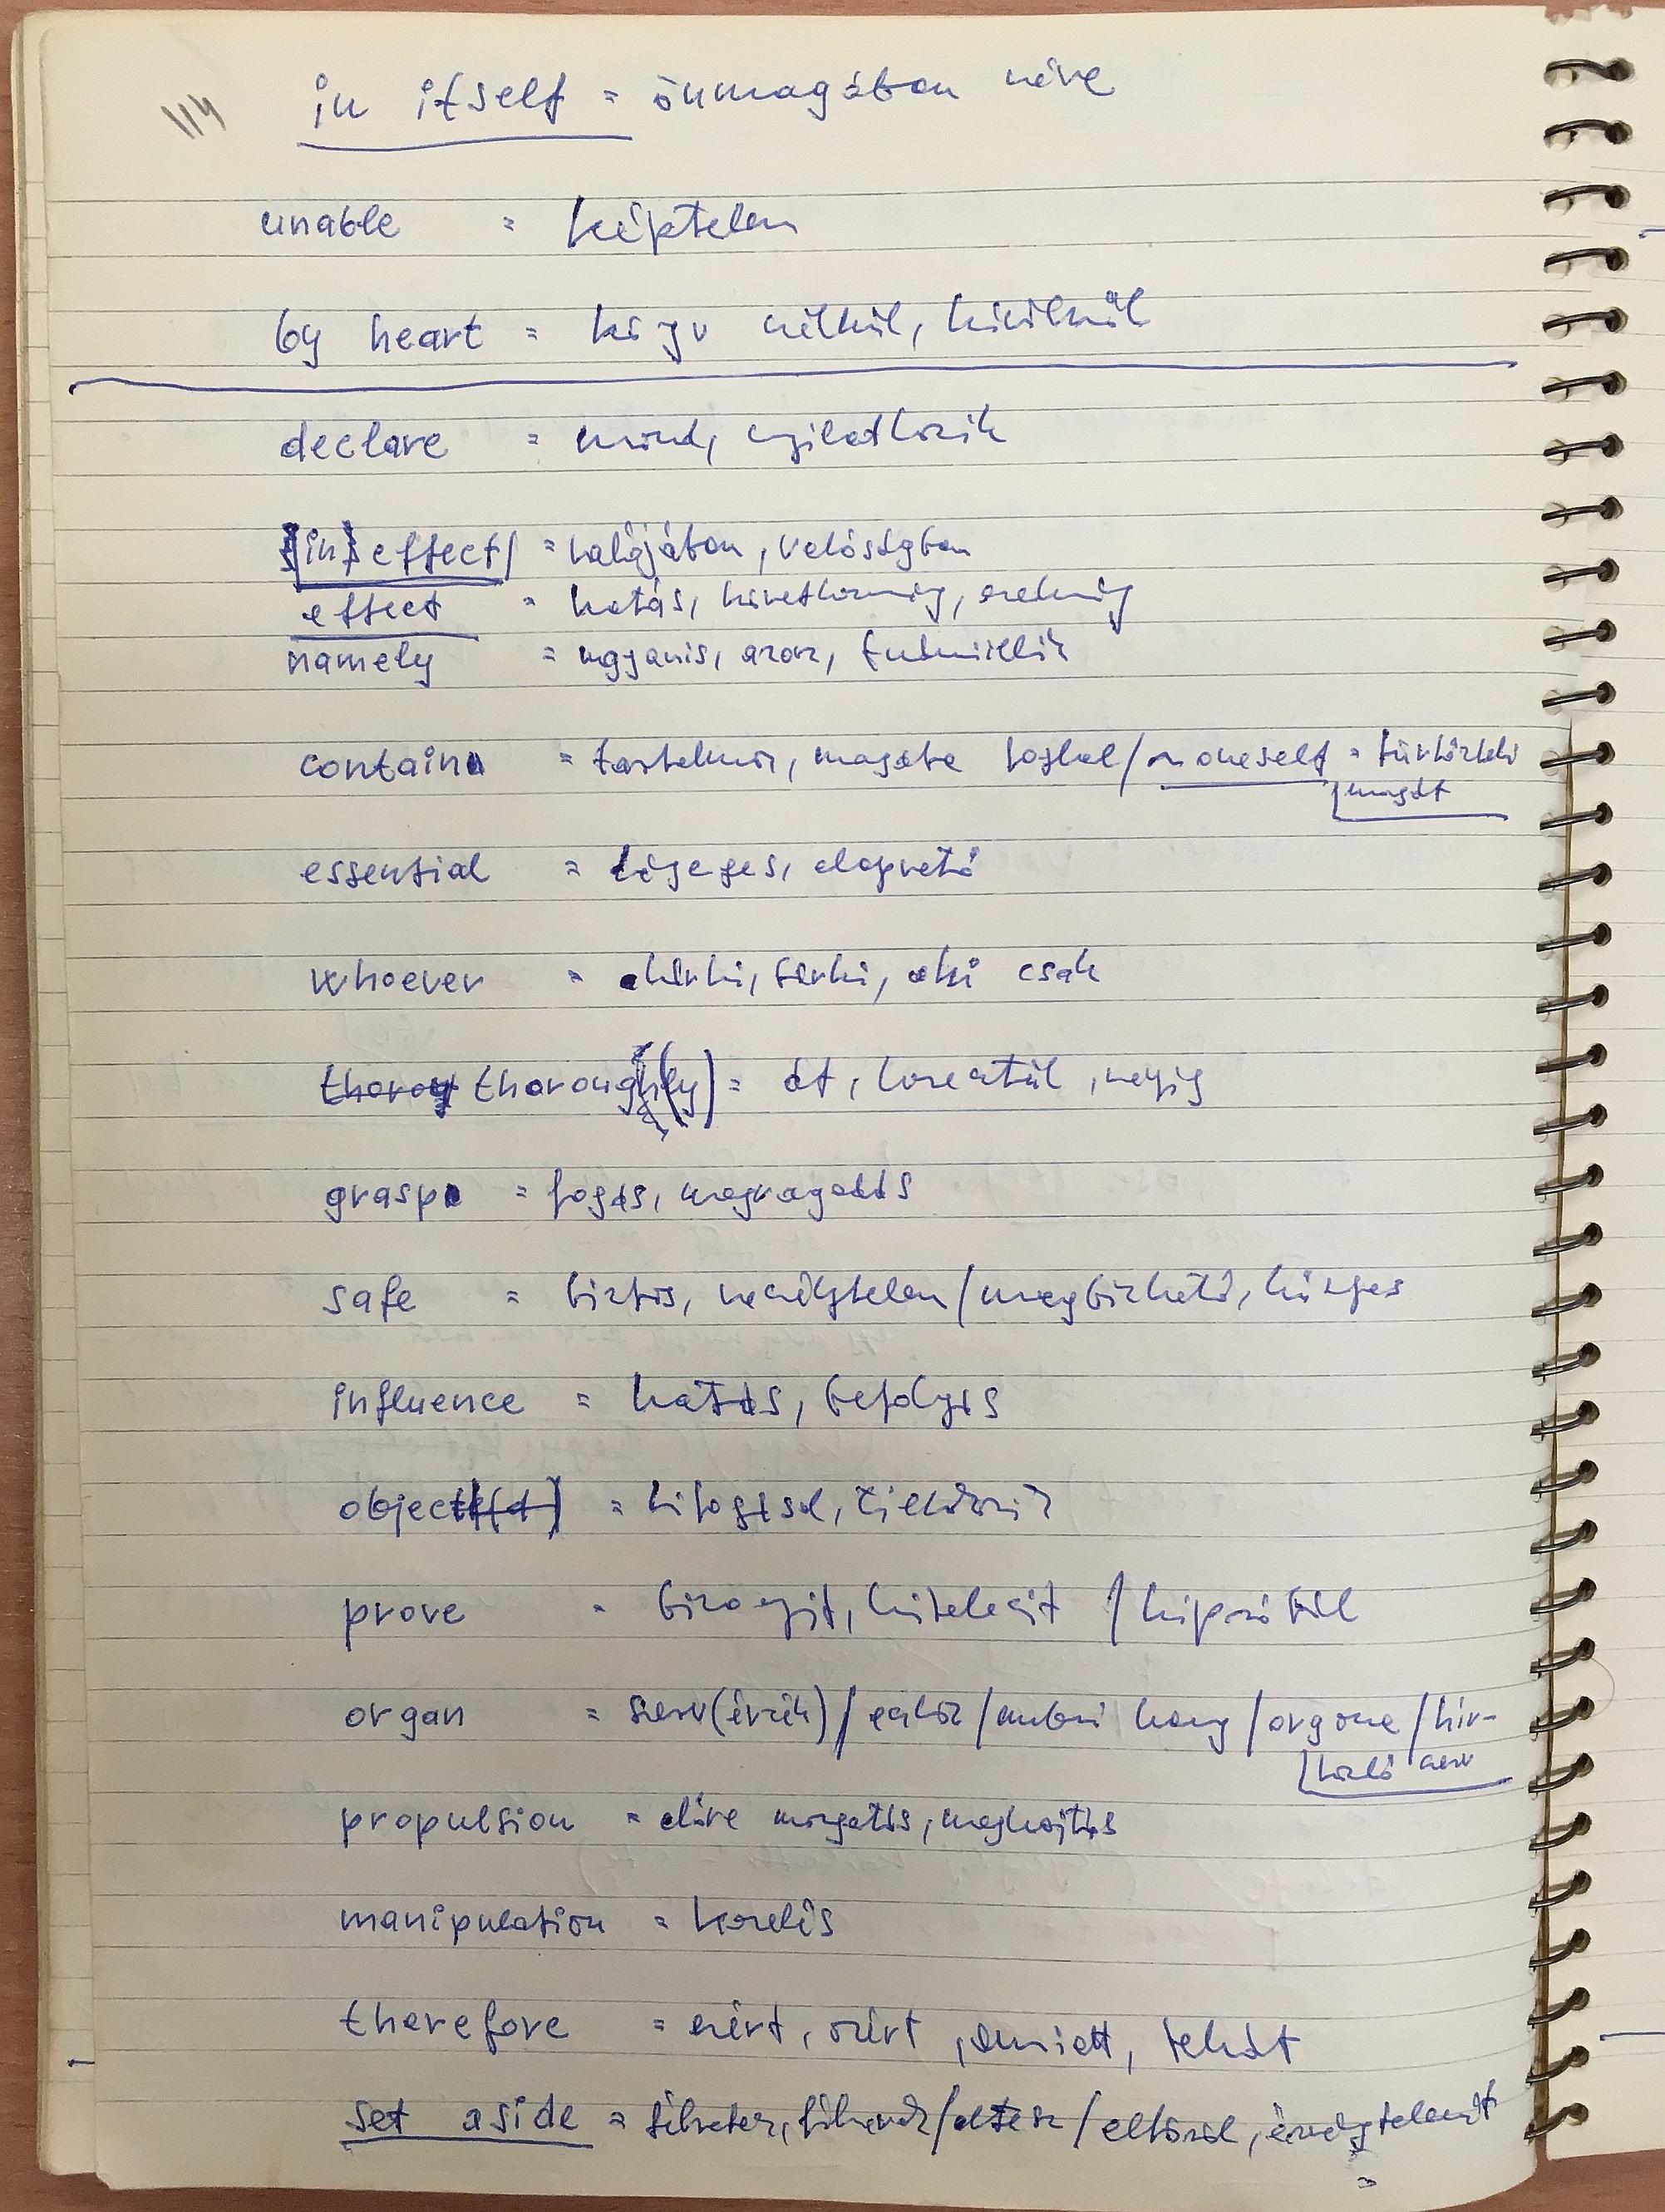 114 in itself = önmagában véve
unable = képtelen
by heart = könyv nélkül, kívülről
declare = mond, nyilatkozik
(in) effect = valójában, valóságban
effect = hatás, következmény, eredmény
namely = ugyanis, azaz, tudniillik
contain = tartalmaz, magába foglal / ~ oneself = türtőzteti
magát
essential = lényeges, alapvető
whoever = akárki, bárki, aki csak
thorough(ly) = át, keresztül, végig
grasp = fogás, megragadás
safe = biztos, veszélytelen / megbízható, hűséges
influence = hatás, befolyás
object = kifogásol, tiltakozik
prove = bizonyít, hitelesít / kipróbál
organ = szerv(érzék) / eszköz / emberi hang / orgona / hír-
közlő szerv
propulsion = előre mozgatás, meghajtás
manipulation = kezelés
therefore = ezért, azért, amiatt, tehát
set aside = félretesz, / eltesz / eltöröl, érvénytelenít